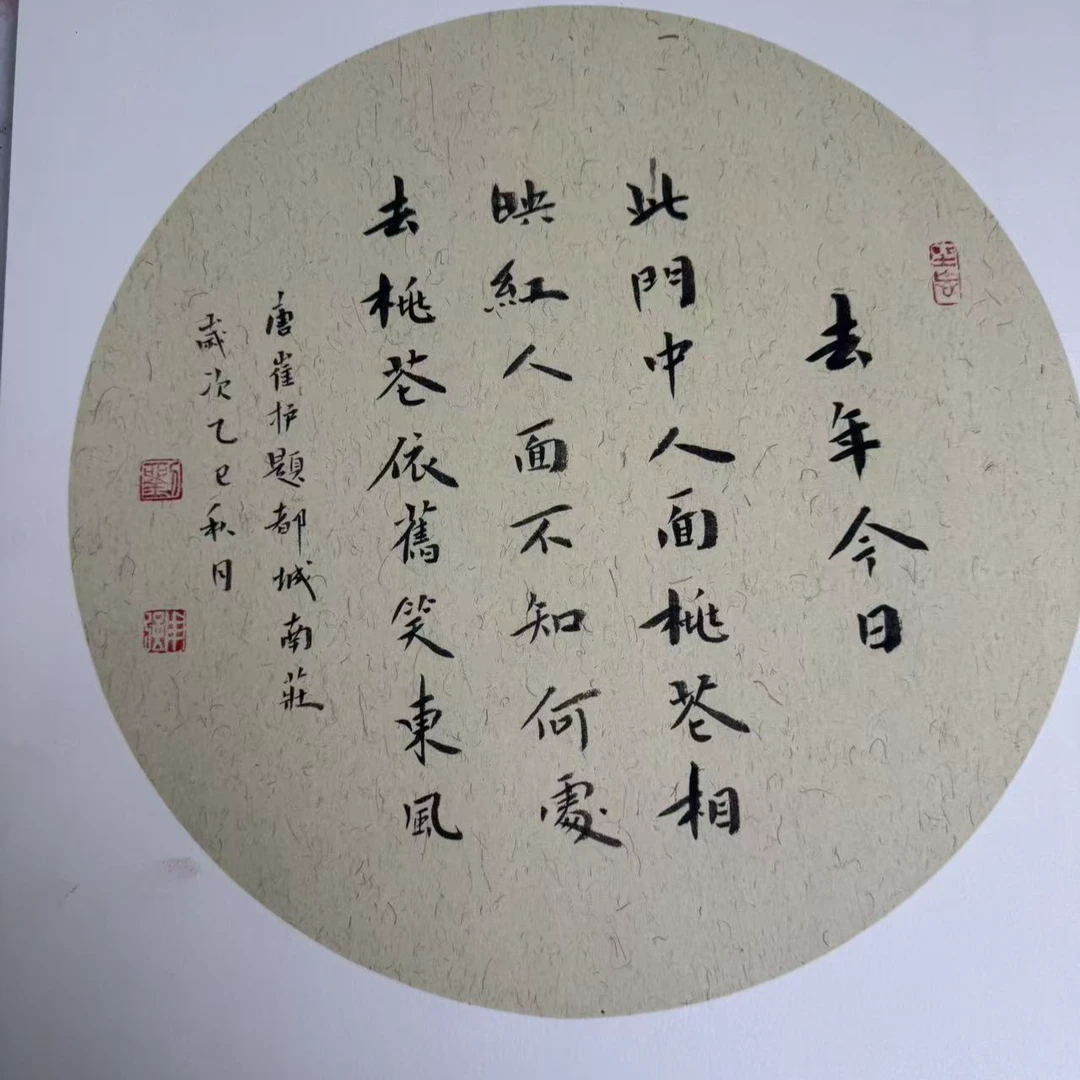 去年今日
此門中人面桃花相
映紅人面不知何處
去桃花依舊笑東風
唐崔护題都城南莊
歲次乙巳秋月